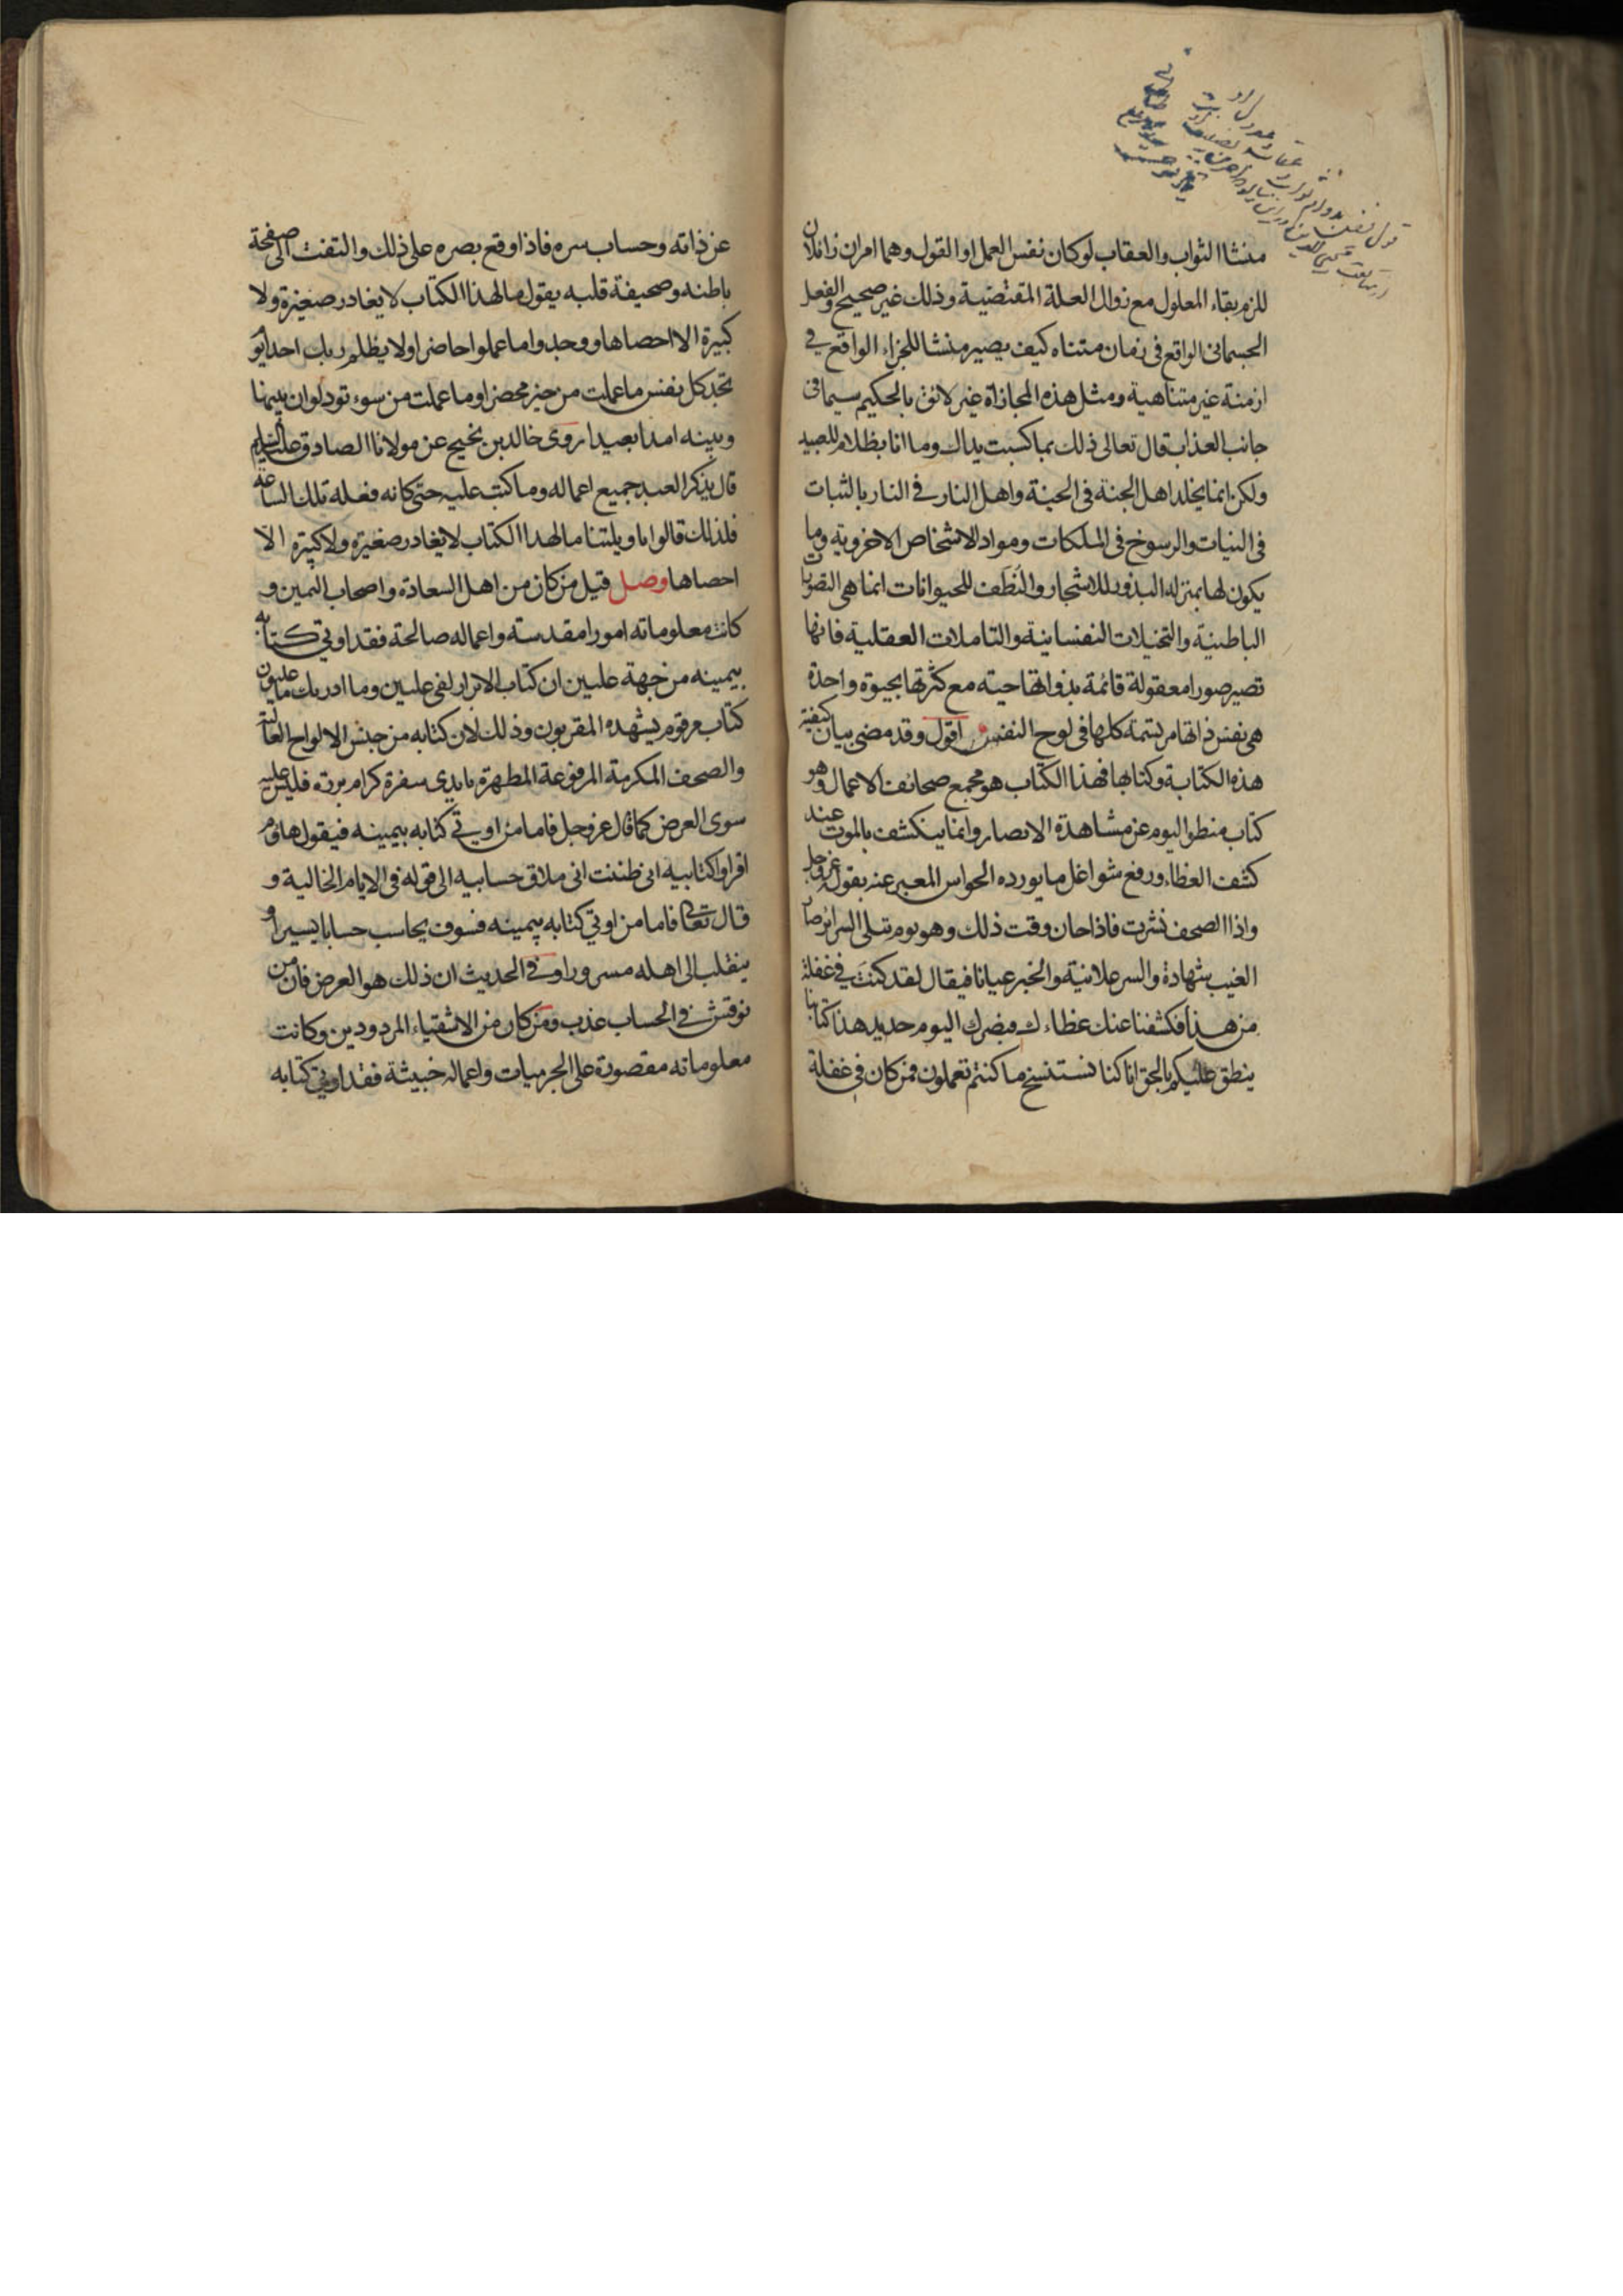 منشا الثواب والعقاب لو كان نفس العمل او القول وهما امران زائلان
للزم بقاء المعلول مع زوال العلة المقتضية وذلك غير صحيح والفعل
الجسمانى الواقع فى زمان متناه كيف يصير منشا للجزاء الواقع في
ازمنة غير متناهية ومثل هذه المجازاة غير لائق بالحكيم سيما فى
جانب العذاب قال تعالى ذلك بما كسبت يداك وما انا بظلام للعبيد
ولكن انما يخلد اهل الجنة فى الجنة واهل النار في النار بالثبات
فى النيات والرسوخ فى الملكات ومواد الاشخاص الاخروية وما
يكون لها بمنزلة البذور للاشجار والنطف للحيوانات انما هى التصورات
الباطنية والتخيلات النفسانية والتاملات العقلية فانها
تصير صورا معقولة قائمة بذواتها حية مع كثرتها بحيوة واحدة
هى نفس ذاتها مرتسمة كلها فى لوح النفس اقول وقد مضى بيان كيفية
هذه الكتابة وكتابها فهذا الكتاب هو مجمع صحائف الاعمال وهو
كتاب منطو اليوم عن مشاهدة الابصار وانما ينكشف بالموت عند
كشف الغطاء ورفع شواغل ما يورده الحواس المعبر عنه بقوله عز وجل
واذا الصحف نشرت فاذا حان وقت ذلك وهو يوم تبلى السرائر صار
الغيب شهادة والسر علانية والخبر عيانا فيقال لقد كنت في غفلة
من هذا فكشفنا عنك غطاءك فبصرك اليوم حديد هذا كتابنا
ينطق عليكم بالحق انا كنا نستنسخ ما كنتم تعملون فمن كان في غفلة
عن ذاته وحساب سره فاذا وقع بصره على ذلك والتفت الى صفحة
باطنه وصحيفة قلبه يقول ما لهذا الكتاب لا يغادر صغيرة ولا
كبيرة الا احصاها ووجدوا ما عملوا حاضرا ولا يظلم ربك احدا يوم
تجد كل نفس ما عملت من خير محضرا وما عملت من سوء تود لو ان بينها
وبينه امدا بعيدا روى خالد بن نجيح عن مولانا الصادق عليه السلم
قال يذكر العبد جميع اعماله وما كتب عليه حتى كانه فعله تلك الساعة
فلذلك قالوا يا ويلتنا ما لهذا الكتاب لا يغادر صغيرة ولا كبيرة الا
احصاها وصل قيل من كان من اهل السعادة واصحاب اليمين و
كانت معلوماته امورا مقدسة واعماله صالحة فقد اوتي كتابه
بيمينه من جهة عليين ان كتاب الابرار لفى عليين وما ادريك ما عليون
كتاب مرقوم يشهده المقربون وذلك لان كتابه من جنس الالواح العالية
والصحف المكرمة المرفوعة المطهرة بايدى سفرة كرام بررة فليس عليه
سوى العرض كما قال عز وجل فاما من اوتي كتابه بيمينه فيقول هاؤم
اقراوا كتابيه انى ظننت انى ملاق حسابيه الى قوله فى الايام الخالية و
قال تعالى فاما من اوتي كتابه بيمينه فسوف يحاسب حسابا يسيرا و
ينقلب الى اهله مسرورا وفي الحديث ان ذلك هو العرض فان من
نوقش في الحساب عذب ومن كان من الاشقياء المردودين وكانت
معلوماته مقصورة على الجرميات واعماله خبيثة فقد اوتي كتابه